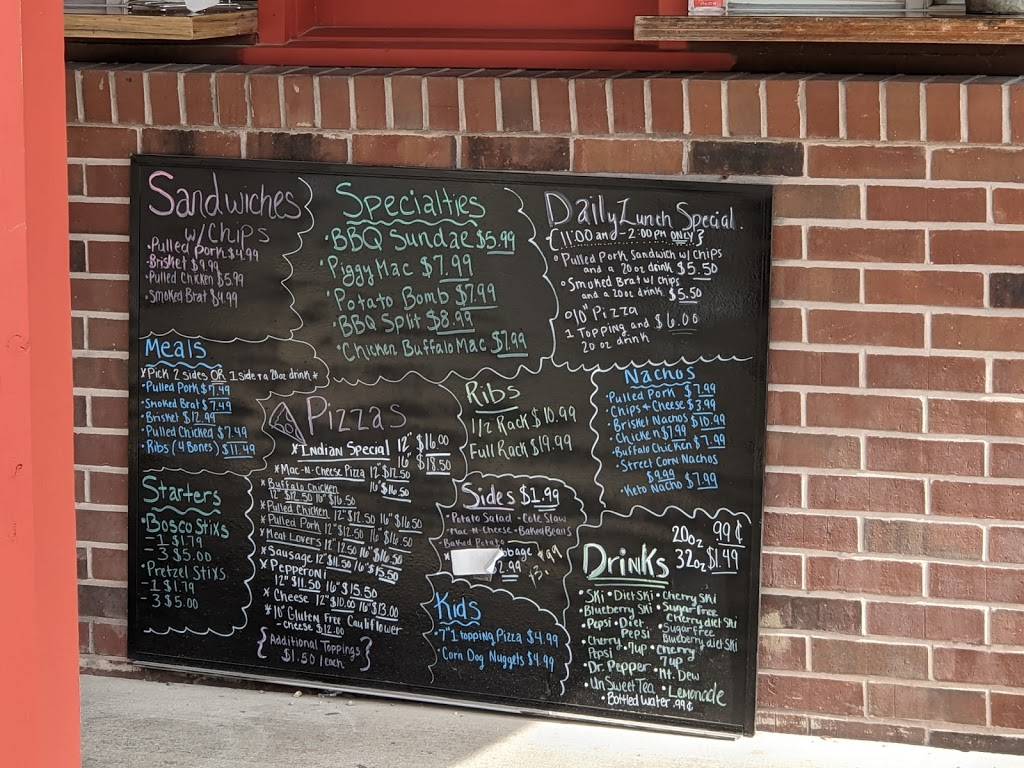 Sandwiches
w/Chips
•Pulled Pork $4.99
•Brisket $9.99
•Pulled Chicken $5.79
•Smoked Brat $4.99
Meals
*Pick 2 sides OR 1 side + a 20oz drink*
•Pulled Pork $7.49
•Smoked Brat $7.49
•Brisket $12.99
•Pulled Chicked $7.49
•Ribs (4 Bones) $11.49
Starters
•Bosco Stixs
-1 $1.79
-3 $5.00
•Pretzel Stixs
-1 $1.79
-3 $5.00
Specialties
•BBQ Sundae $5.99
•Piggy Mac $7.99
•Potato Bomb $7.99
•BBQ Split $8.99
•Chicken Buffalo Mac $7.99
Pizzas
*Indian Special 12" $16.00
16" $18.50
*Mac-N-Cheese Pizza 12" $12.50
16" $16.50
*Buffalo Chicken
12" $12.50 16" $16.50
*Pulled Chicken 12" $12.50 16" $16.50
*Pulled Pork 12" $12.50 16" $16.50
*Meat Lovers 12" 12.50 16" $16.50
*Sausage 12" $11.50 16" $15.50
*Pepperoni
12" $11.50 16" $15.50
*Cheese 12" $10.00 16" $13.00
*10" Gluten Free Cauliflower
-Cheese $12.00
{Additional Toppings
$1.50 / each}
Daily Lunch Special.
{11:00 am - 2:00 PM ONLY}
•Pulled Pork Sandwich w/ Chips
and a 20oz drink $5.50
•Smoked Brat w/ chips
and a 20oz drink $5.50
•10" Pizza
1 Topping and $6.00
20 oz drink
Ribs
1/2 Rack $10.99
Full Rack $19.99
Nachos
•Pulled Pork $7.99
•Chips + Cheese $3.99
•Brisket Nachos $10.99
•Chicken $7.99
•Buffalo Chicken $7.99
•Street Corn Nachos
$9.99
•Keto Nacho $7.99
Sides $1.99
•Potato Salad •Cole Slaw
•Mac-N-Cheese •Baked Beans
•Baked Potato
Kids
•7" 1 topping Pizza $4.99
•Corn Dog Nuggets $4.99
Drinks
20oz .99¢
32oz $1.49
•Ski •Diet Ski •Cherry Ski
•Blueberry Ski •Sugar Free
Cherry diet Ski
•Pepsi •Diet Pepsi •Sugar free
Blueberry diet Ski
•Cherry Pepsi •7up •Cherry 7up
•Dr. Pepper •Mt. Dew
•UnSweet Tea •Lemonade
•Bottled Water .99¢